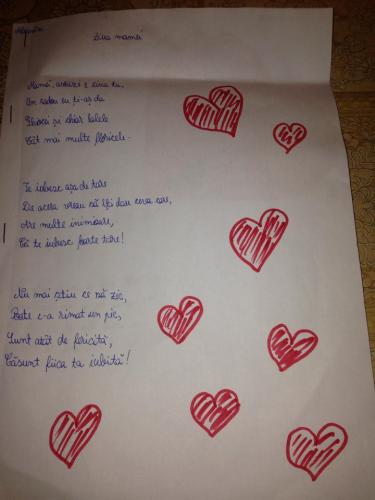 Ziua mamei
Mamă, astăzi e ziua ta,
Un cadou eu ți-aș da
Ghiocei și chiar lalele
Cât mai multe floricele.
Te iubesc așa de tare
De aceea vreau să îți dau ceva care,
Are multe inimioare,
Că te iubesc foarte tare!
Nu mai știu ce să zic,
Poate c-a rimat un pic,
Sunt atât de fericită,
Căsunt fiica ta iubită!